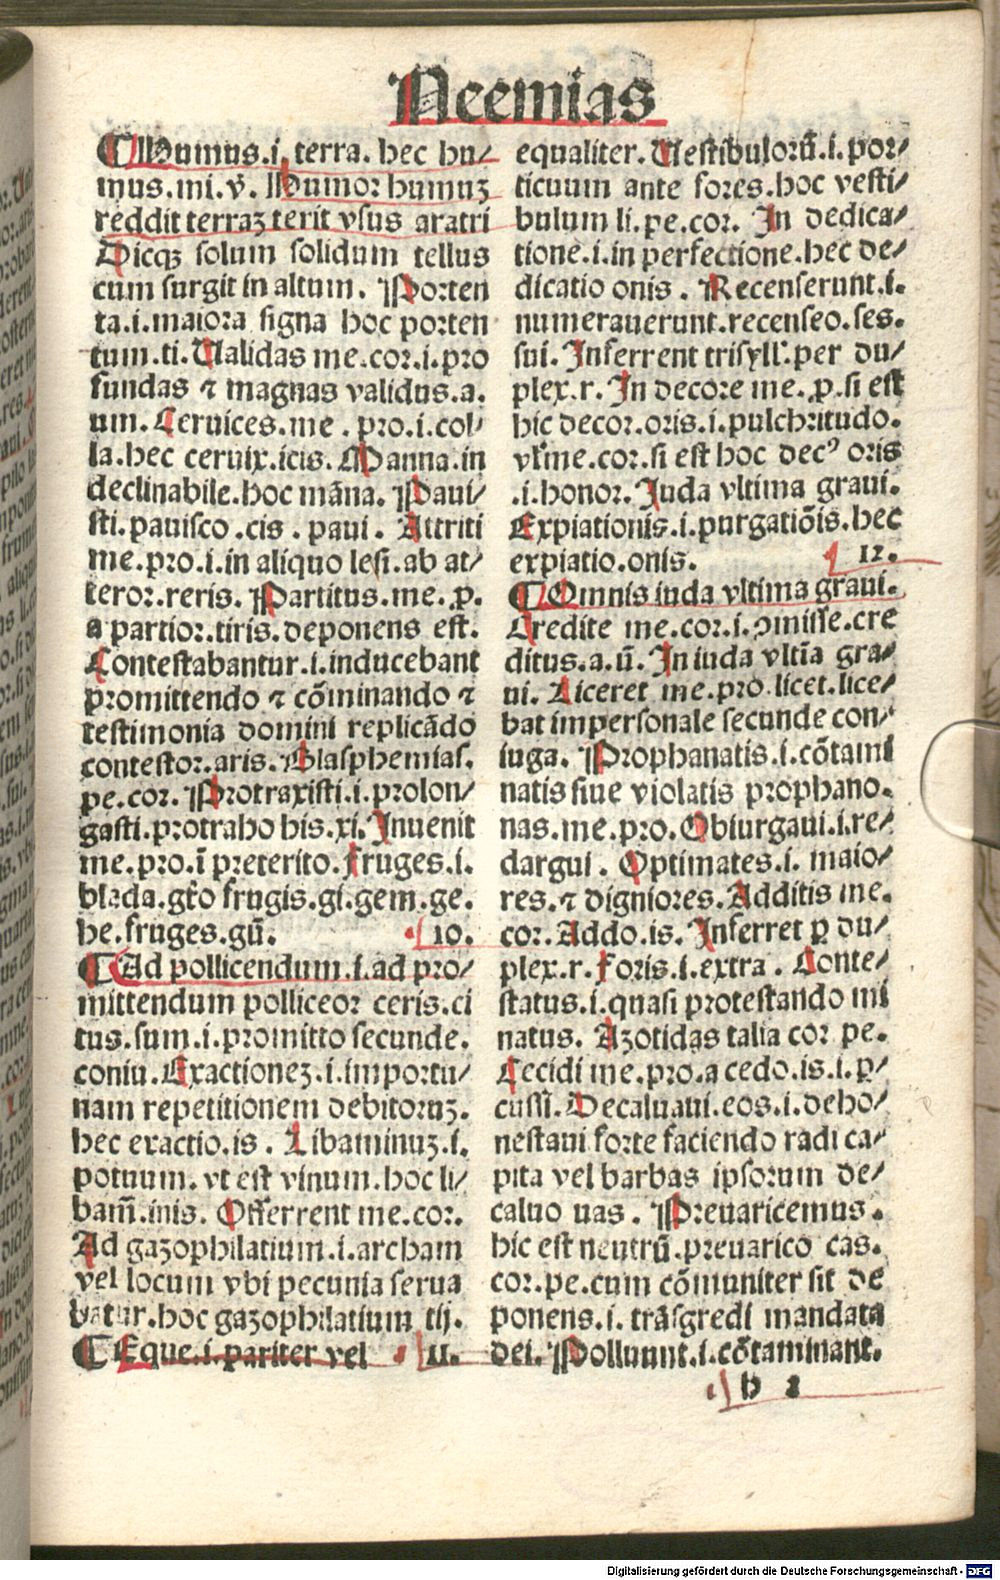 Neemias
¶ Humus.i. terra. hec hu/
mus.mi.v̄. Humor humuꝫ
reddit terraꝫ terit vsus aratri
Dicqꝫ solum solidum tellus
cum surgit in altum. Porten
ta.i.maiora signa hoc porten
tum.ti. Ualidas me.cor.i.pro
fundas ⁊ magnas validus.a.
um. Ceruices.me.pro.i.col/
la.hec ceruix.icis. Manna.in
declinabile.hoc māna. Paui/
sti.pauisco.cis.paui. Attriti
me.pro.i.in aliquo lesi.ab at/
teror.reris. Partitus.me.p̄.
a partior.tiris.deponens est.
Contestabantur.i.inducebant
promittendo ⁊ cōminando ⁊
testimonia domini replicādo
contestor.aris. Blasphemias.
pe.cor. Protraxisti.i.prolon/
gasti.protraho his.xi. Inuenit
me.pro.ī preterito. Fruges.i.
blada.gt̄o frugis.gi.gem.ge.
he.fruges.gū.
10.
¶ Ad pollicendum.i.ad pro/
mittendum polliceor ceris.ci
tus.sum.i.promitto secunde.
coniu. Exactioneꝫ.i.importu/
nam repetitionem debitoruꝫ.
hec exactio.is. Libaminuꝫ.i.
potuum.vt est vinum.hoc li/
bam̄.inis. Offerrent me.cor.
Ad gazophilatium.i.archam
vel locum vbi pecunia serua
batur.hoc gazophilatium tij.
¶ Eque.i.pariter vel
11.
equaliter. Uestibulorū.i.por/
ticuum ante fores.hoc vesti/
bulum li.pe.cor. In dedica/
tione.i.in perfectione.hec de/
dicatio onis. Recenserunt.i.
numerauerunt.recenseo.ses.
sui. Inferrent trisyll'.per du/
plex.r. In decore me.p̄.si est
hic decor.oris.i.pulchritudo.
vl'me.cor.si est hoc decꝰ oris
.i.honor. Iuda vltima graui.
Expiationis.i.purgatiōis.hec
expiatio.onis.
12.
¶ Omnis iuda vltima graui.
Credite me.cor.i.ꝯmisse.cre
ditus.a.ū. In iuda vltīa gra/
ui. Liceret me.pro.licet.lice/
bat impersonale secunde con/
iuga. Prophanatis.i.cōtami
natis siue violatis prophano.
nas.me.pro. Obiurgaui.i.re/
dargui. Optimates.i. maio/
res.⁊ digniores. Additis me.
cor. Addo.is. Inferret ꝑ du/
plex.r. Foris.i.extra. Conte/
status.i.quasi protestando mi
natus. Azotidas talia cor pe.
Cecidi me.pro.a cedo.is.i.ꝑ/
cussi. Decaluaui.eos.i.deho/
nestaui forte faciendo radi ca/
pita vel barbas ipsorum de/
caluo uas. Preuaricemus.
hic est neutrū.preuarico cas.
cor.pe.cum cōmuniter sit de
ponens.i. trāsgredi mandata
dei. Polluunt.i.cōtaminant.
h 1
Digitalisierung gefördert durch die Deutsche Forschungsgemeinschaft - DFG